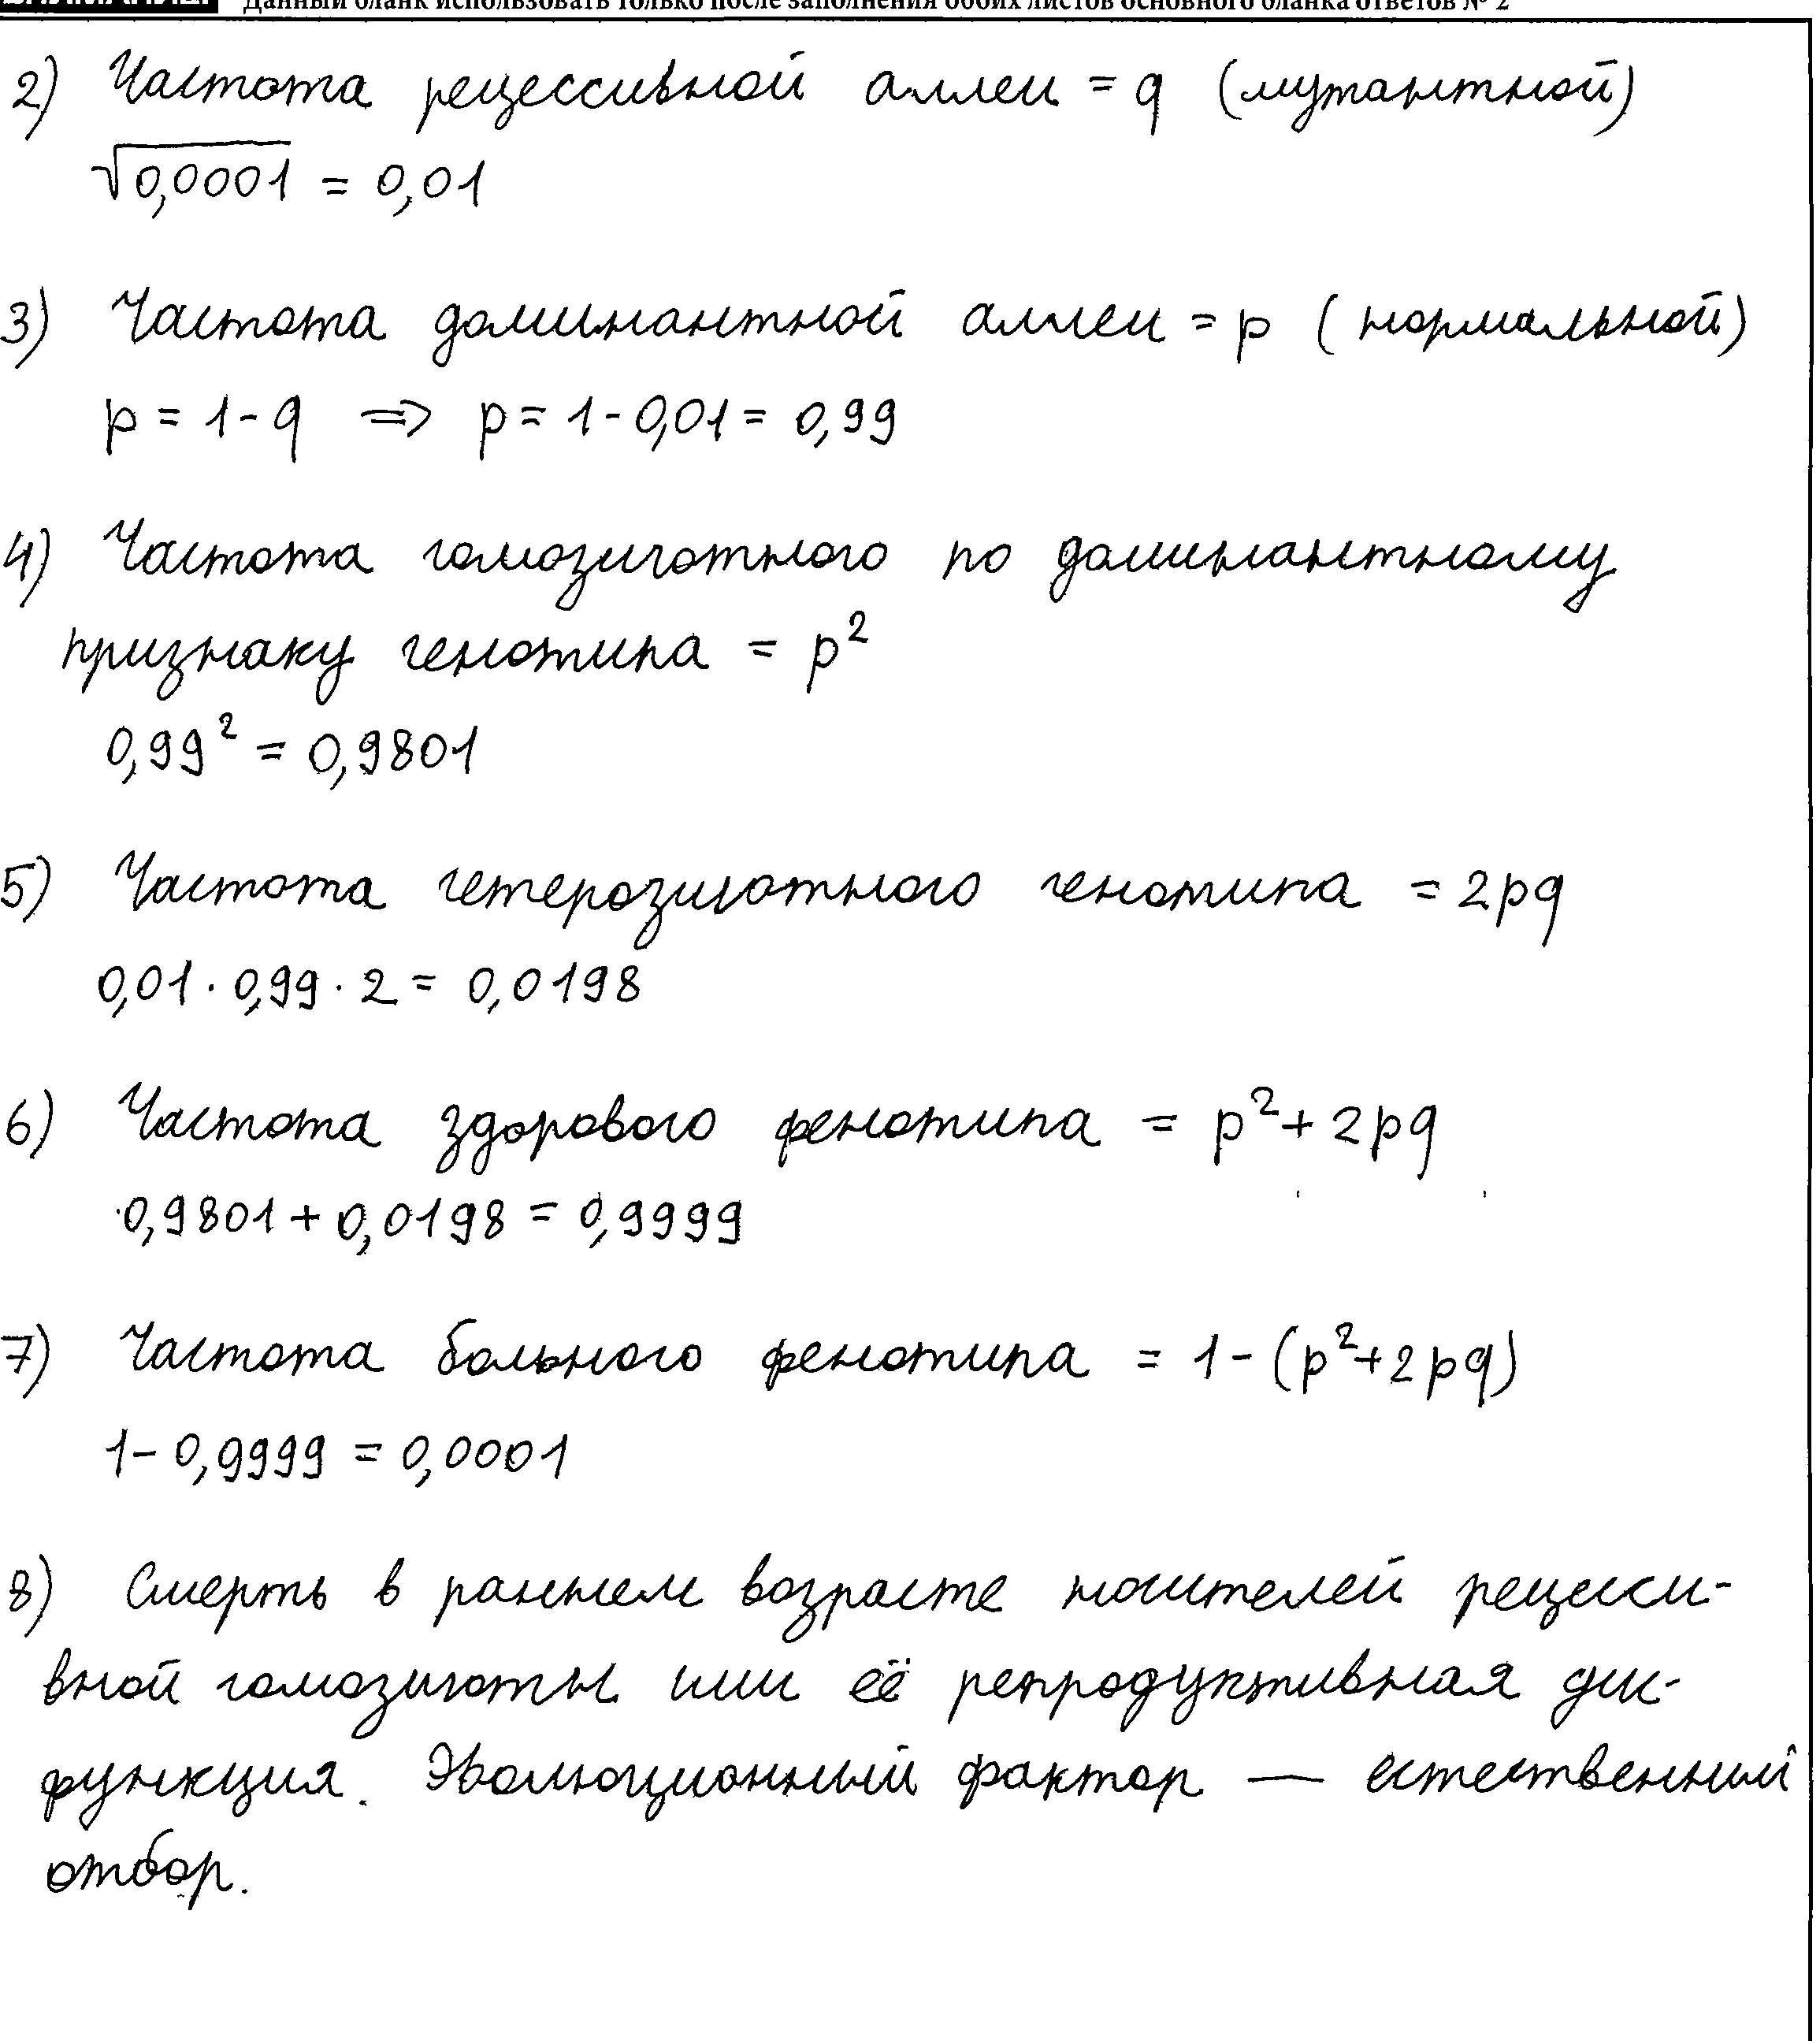 Данный бланк использовать только после заполнения обоих листов основного бланка ответов № 2
2) Частота рецессивной аллеи = q (мутантной)
√0,0001 = 0,01
3) Частота доминантной аллеи = p (нормальной)
p = 1 - q ⇒ p = 1 - 0,01 = 0,99
4) Частота гомозиготного по доминантному
признаку генотипа = p²
0,99² = 0,9801
5) Частота гетерозиготного генотипа = 2pq
0,01 · 0,99 · 2 = 0,0198
6) Частота здорового фенотипа = p² + 2pq
0,9801 + 0,0198 = 0,9999
7) Частота больного фенотипа = 1 - (p² + 2pq)
1 - 0,9999 = 0,0001
8) Смерть в раннем возрасте носителей рецесси-
вной гомозиготы или её репродуктивная дис-
функция. Эволюционный фактор — естественный
отбор.